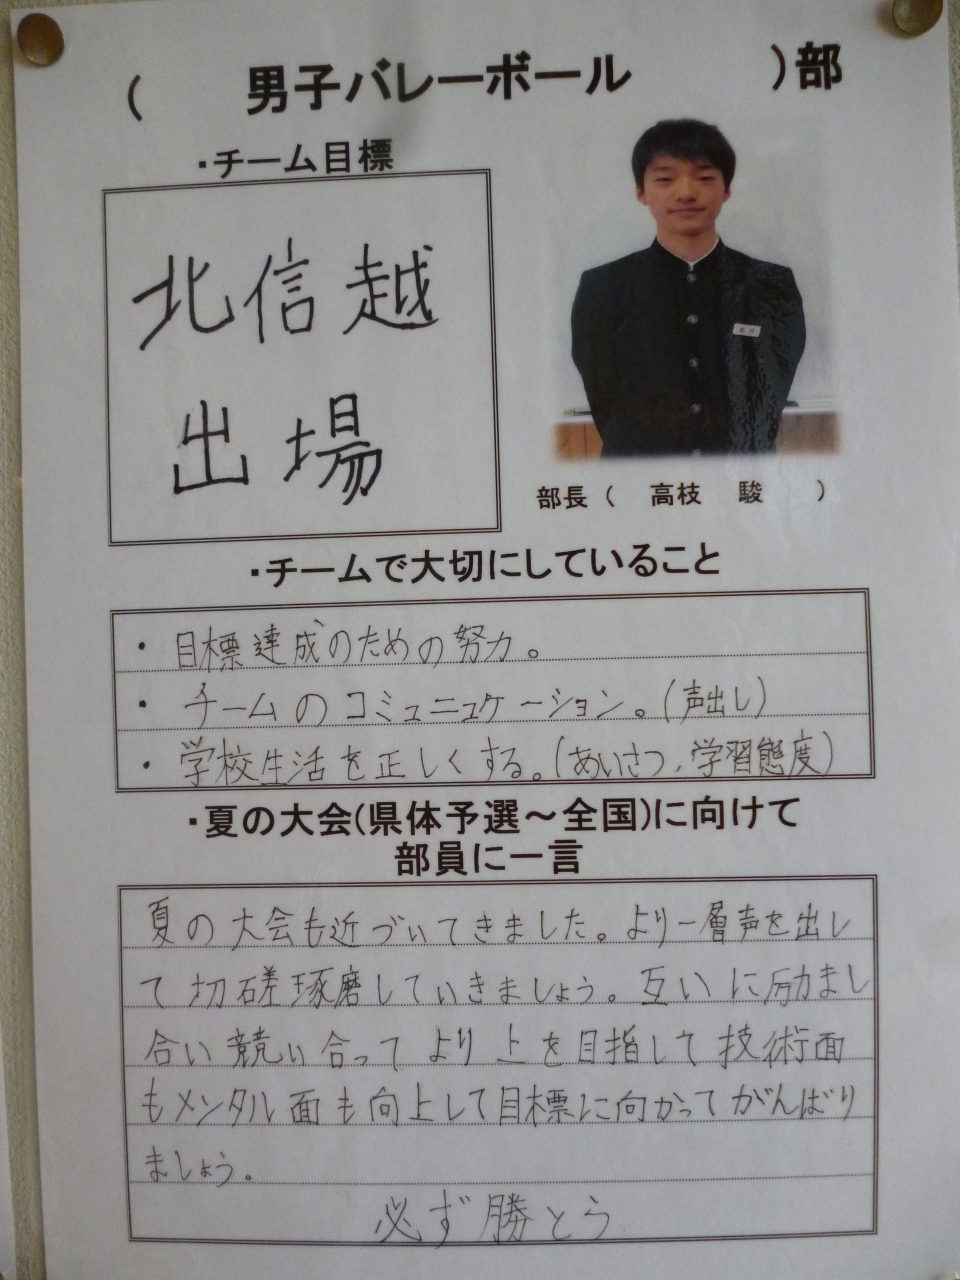 （　男子バレーボール　）部
・チーム目標
北信越
出場
部長（　高枝　駿　）
・チームで大切にしていること
・目標達成のための努力。
・チームのコミュニュケーション。(声出し)
・学校生活を正しくする。(あいさつ、学習態度)
・夏の大会(県体予選～全国)に向けて
部員に一言
夏の大会も近づいてきました。より一層声を出し
て切磋琢磨していきましょう。互いに励まし
合い競い合ってより上を目指して技術面
もメンタル面も向上して目標に向かってがんばり
ましょう。
必ず勝とう